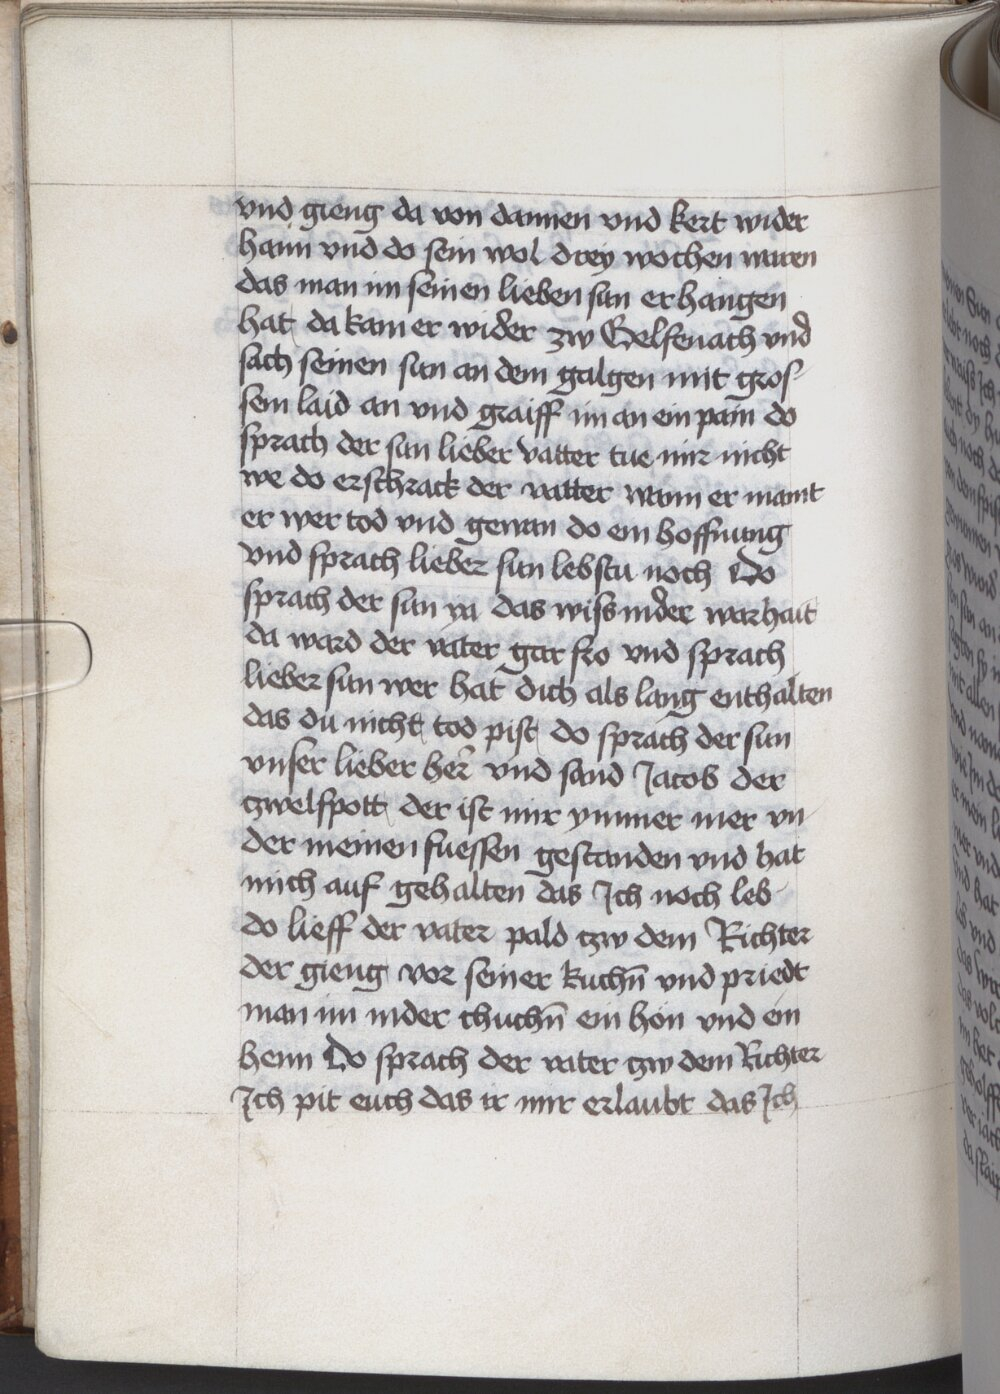 vnd gieng da von dannen vnd kert wider
haim vnd do sein wol drey wochen waren
das man im seinen lieben sun erhangen
hat da kam er wider zw Gelfenach vnd
sach seinen sun an dem galgen mit gros-
sem laid an vnd graiff im an ein pain do
sprach der sun lieber vatter tue mir nicht
we do erschrack der vatter wann er maint
er wer tod vnd gewan do ein hoffnung
vnd sprach lieber sun lebstu noch Do
sprach der sun ya das wiss inder warhait
da ward der vater gar fro vnd sprach
lieber sun wer hat dich als lang enthalten
das du nicht tod pist do sprach der sun
vnser lieber her vnd sand Jacob der
zwelfpott der ist mir ymmer mer vn-
der meinen fuessen gestanden vnd hat
mich auf gehalten das Ich noch leb
do lieff der vater pald zw dem Richter
der gieng vor seiner kuchn̄ vnd priedt
man im inder chuchn̄ ein hon vnd ein
henn Do sprach der vater zw dem Richter
Ich pit euch das ir mir erlaubt das Ich